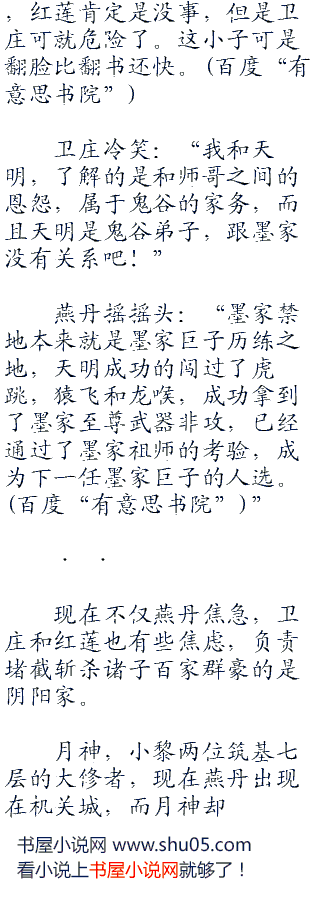 ，红莲肯定是没事，但是卫
庄可就危险了。这小子可是
翻脸比翻书还快。(百度“有
意思书院”)
卫庄冷笑：“我和天
明，了解的是和师哥之间的
恩怨，属于鬼谷的家务，而
且天明是鬼谷弟子，跟墨家
没有关系吧！”
燕丹摇摇头：“墨家禁
地本来就是墨家巨子历练之
地，天明成功的闯过了虎
跳，猿飞和龙喉，成功拿到
了墨家至尊武器非攻，已经
通过了墨家祖师的考验，成
为下一任墨家巨子的人选。
(百度“有意思书院”)”
．．
现在不仅燕丹焦急，卫
庄和红莲也有些焦虑，负责
堵截斩杀诸子百家群豪的是
阴阳家。
月神，小黎两位筑基七
层的大修者，现在燕丹出现
在机关城，而月神却
书屋小说网 www.shu05.com
看小说上书屋小说网就够了！